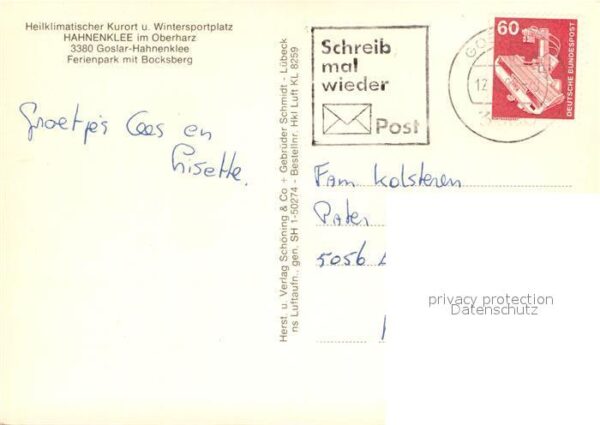 Heilklimatischer Kurort u. Wintersportplatz
HAHNENKLEE im Oberharz
3380 Goslar-Hahnenklee
Ferienpark mit Bocksberg
Groetjes Cees en
Lisette.
Herst. u. Verlag Schöning & Co + Gebrüder Schmidt - Lübeck
ns Luftaufn., gen. SH 1-50274 - Bestellnr. Hkl Luft KL 8259
Schreib
mal
wieder
Post
60
DEUTSCHE BUNDESPOST
Fam Kolsteren
Pater
5056
privacy protection
Datenschutz